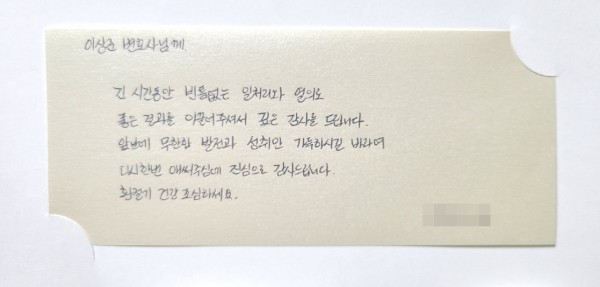 이상권 변호사님께
긴 시간동안 빈틈없는 일처리와 열의로
좋은 결과를 이끌어주셔서 깊은 감사를 드립니다.
앞날에 무한한 발전과 성취만 가득하시길 바라며
다시한번 애써주심에 진심으로 감사드립니다.
환절기 건강 조심하세요.